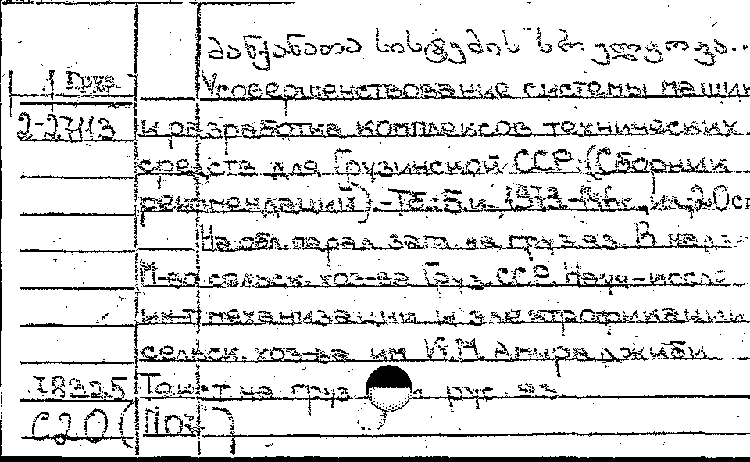 მანქანათა სისტემის სრულყოფა...
Груз. Усовершенствование системы машин
2-27113 и разработка комплексов технических
средств для Грузинской ССР. (Сборник
рекомендаций).-Тб.: Б.и., 1973-
На обл. парал. загл. на груз. яз. В надзаг.:
М-во сельск. хоз-ва Груз. ССР. Науч-исслед
ин-т механизации и электрификации
сельск. хоз-ва им. К.М. Амираджиби
18225 Текст на груз. и рус. яз.
С20 (Поз)